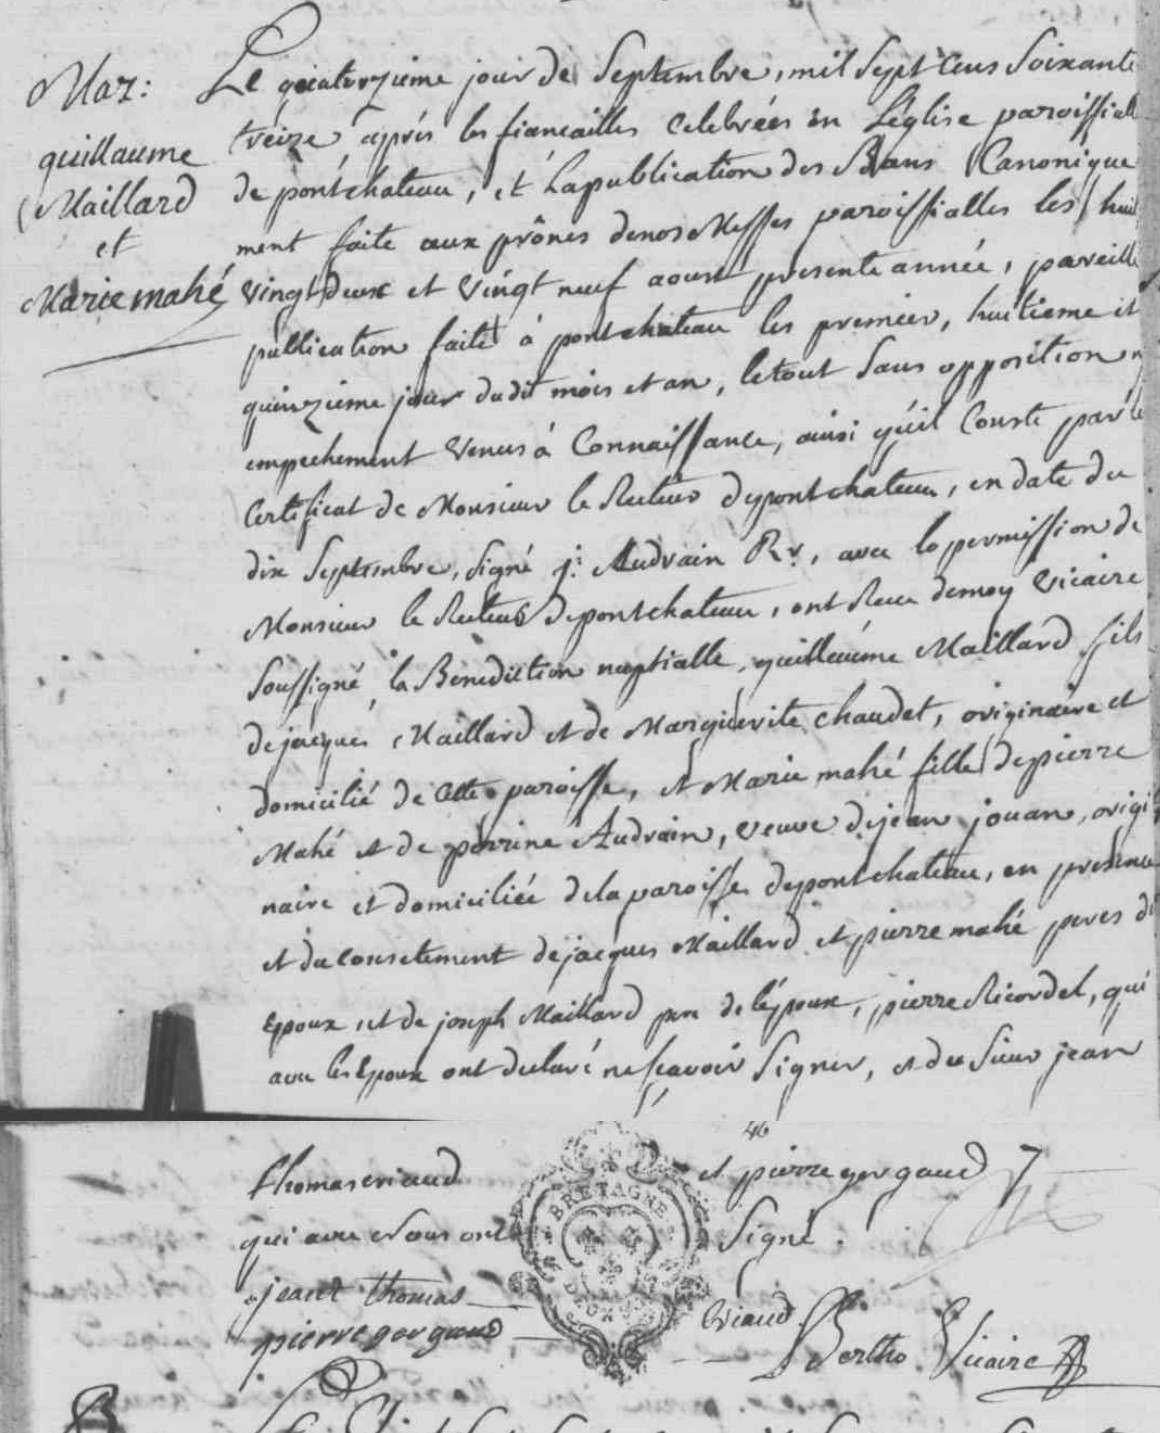 Mar:
guillaume
Maillard
et
Marie mahé
Le quatorzieme jour de Septembre, mil Sept Cens Soixante
treize apprés les fiancailles Celebrées en L'église paroissialle
de pontchateau, et La publication des Bans Canonique
ment faite aux prônes de nos Messes paroissialles les huit
vingt deux et vingt neuf aoust presente année, pareille
publication faite à pontchateau les premier, huitieme et
quinzieme jour dudit mois et an, le tout Sans opposition ny
empechement venus à Connaissance, ainsi qu'il Conste par le
Certificat de Monsieur le Recteur de pontchateau, en date du
dix Septembre, Signé j: Audrain Rr, avec la permission de
Monsieur le Recteur de pontchateau, ont Recu de moy vicaire
Soussigné la Benediction nuptialle, guillaume Maillard fils
de jacques Maillard et de Marguerite chaudet, originaire et
domicilié de Cette paroisse, et Marie mahé fille de pierre
Mahé et de perrine Audrain, veuve de jean jouan, origi
naire et domiciliée de la paroisse de pontchateau, en presence
et du consetement de jacques Maillard et pierre mahé peres des
Epoux, et de joseph Maillard de l'époux, pierre Ricordel, qui
avec les Epoux ont declaré ne scavoir Signer, et du Sieur jean
46
thomas eriaud et pierre gergaud
qui avec Nous ont Signé.
BRETAGNE
jean thomas Eriaud.
pierre gergaud Bertho Vicaire